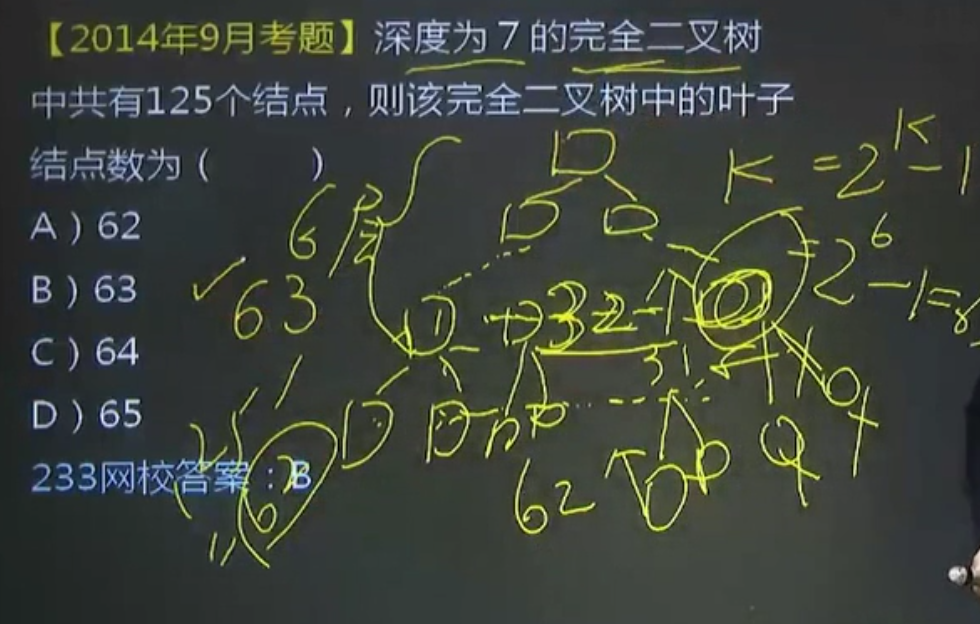 【2014年9月考题】深度为7的完全二叉树
中共有125个结点，则该完全二叉树中的叶子
结点数为（ ）
A）62
B）63
C）64
D）65
233网校答案：B
K = 2^K - 1
= 2^6 - 1 =
6层
63
32-1
31
62